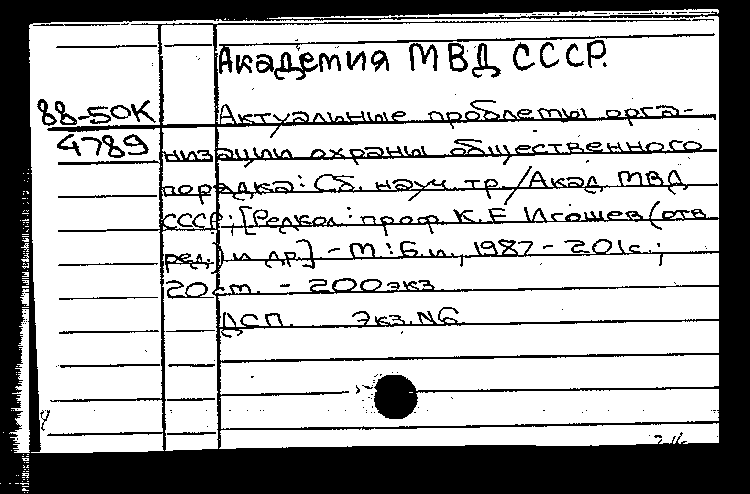 Академия МВД СССР.
88-50К
4789
Актуальные проблемы орга-
низации охраны общественного
порядка: Сб. науч. тр./Акад МВД
СССР; [Редкол.: проф. К.Е Игошев (отв.
ред.) и др.] - М.: Б.и., 1987 - 201с.;
20см. - 200экз.
ДСП. Экз.N6